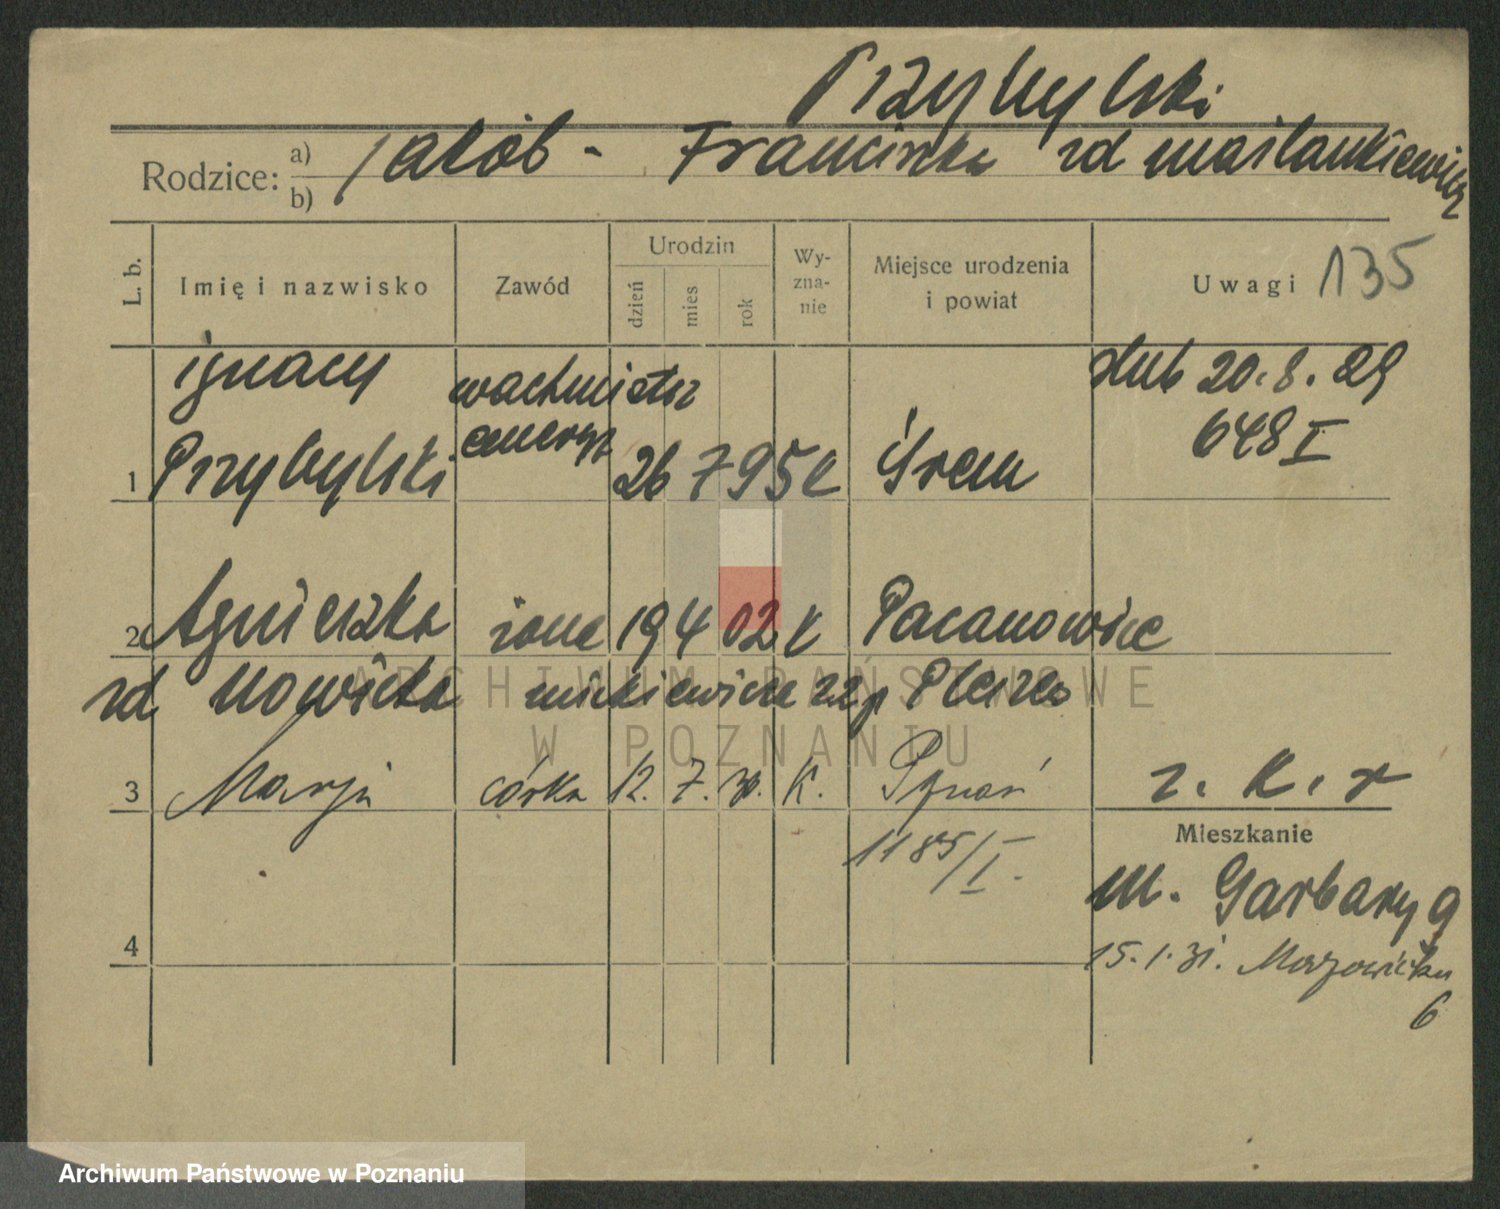 Przybylski
Rodzice: a) b) Jakób - Franciszka zd Maślankiewicz
L. b. Imię i nazwisko Zawód Urodzin dzień mies rok Wy-zna-nie Miejsce urodzenia i powiat Uwagi 135
Ignacy wachmistrz ślub 20.8.29
emeryt 648 I
1 Przybylski 26 7 95 k Śrem
2 Agnieszka żona 19 4 02 k Pacanowice
zd Nowicka p Pleszew
3 Marja córka 12. 7. 30. K. Pznań z. k. r
1185/I.
Mieszkanie
m. Garbary 9
4
15.1.31. Mazowiecka
6
ARCHIWUM PAŃSTWOWE
W POZNANIU
Archiwum Państwowe w Poznaniu